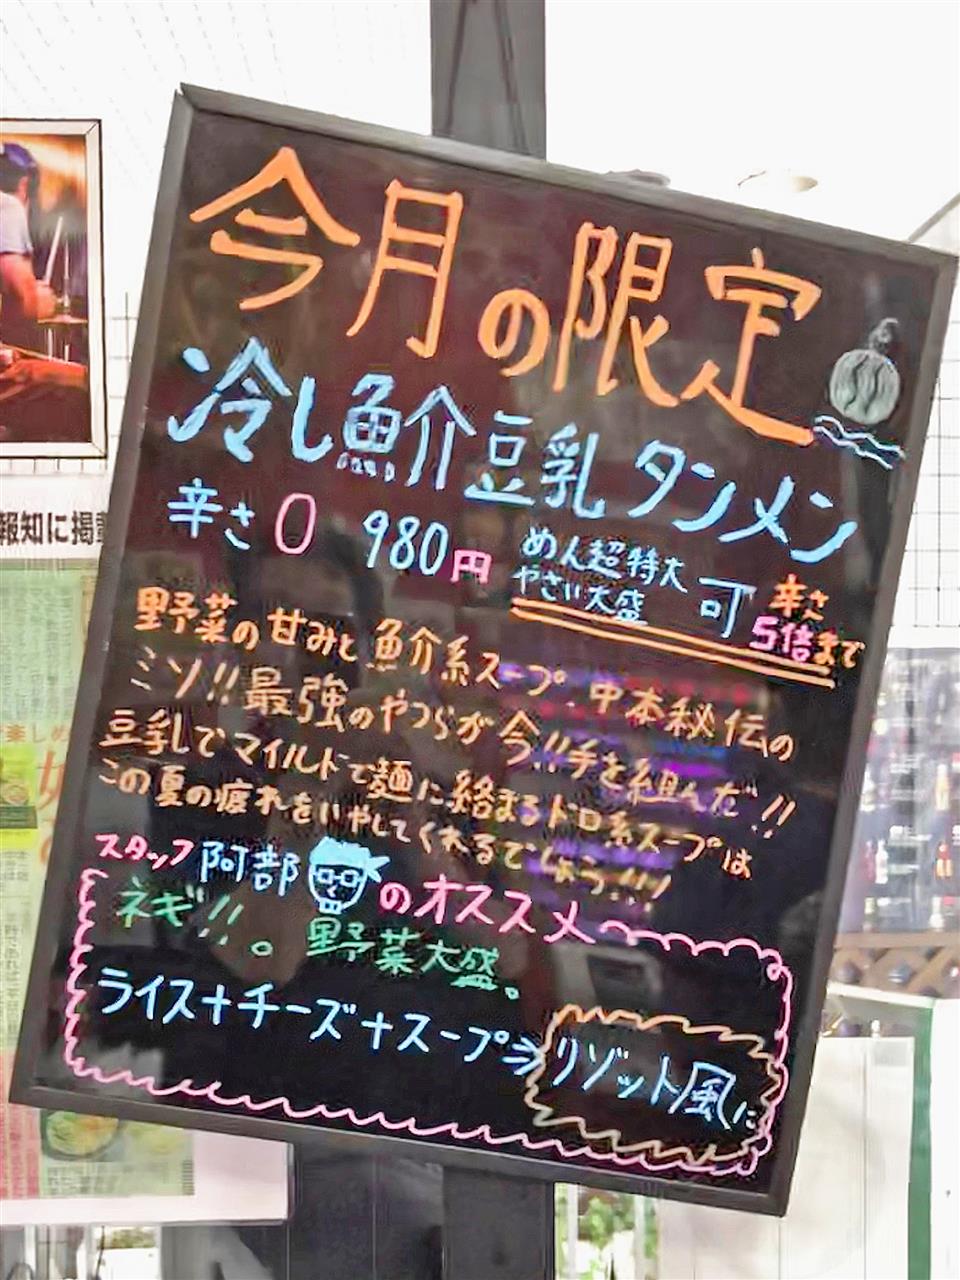 今月の限定
冷し魚介豆乳タンメン
辛さ0 980円 めん超特大
やさい大盛 可 辛さ
5倍まで
野菜の甘みと魚介系スープ、中本秘伝の
ミソ!!最強のやつらが今!!手を組んだ!!
豆乳でマイルドで麺に絡まるドロ系スープは
この夏の疲れをいやしてくれるでしょう!!!
スタッフ阿部のオススメ〜
ネギ!!。野菜大盛。
ライス+チーズ+スープ⇒リゾット風に
報知に掲載